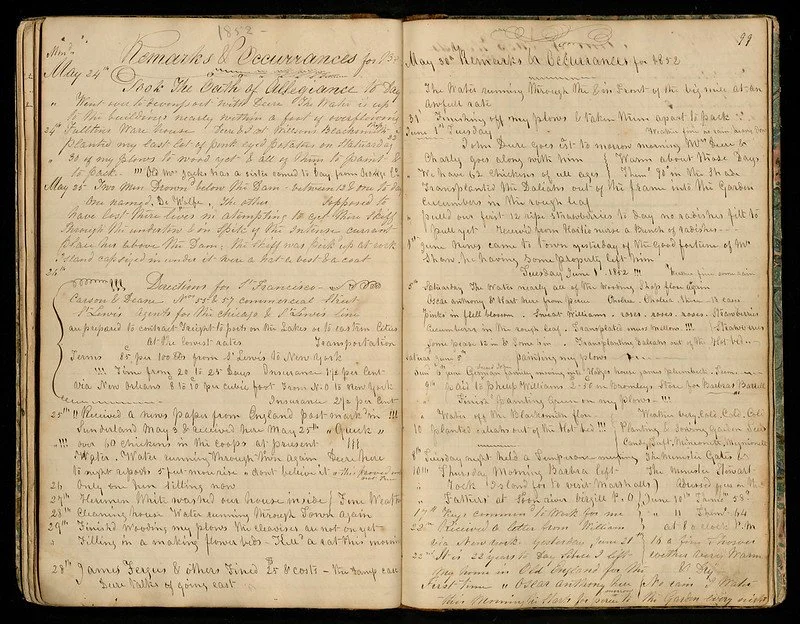 1852
Remarks & Occurrances for 1852
May 24th Took The Oath of Allegiance to Day
" Went over to devonport with Deere The Water is up
to the buildings nearly within a foot of overflowing
24th Fulltons Ware house
planted my last lot of pink eyed potatoes on Statuarday 22
" 30 of my plows to wood yet & all of them to paint &
to pack. !!! Old Mr Jacks has a sister comed to Day from
May 25 Two Men Drown'd below the Dam - between 12 & one to day
One named De Wolfe, The other Supposed to
have lost there lives in atempting to get there Skiff
through the undertow & in Spite of the Intense currant
place has above the Dam; the Skiff was pick up at rock
Island capsized in under it were a hat a boot & a coat
26th
!!! Directions for St Francisco
Carson & Deane Nos 55 & 57 commercial Street
St Lewis agents for the Chicago & St Lewis line
are prepared to contract Freight to ports on the Lakes or to eastern Cities
At the lowest rates Transportation
Terms 85 per 100 lbs from St Lewis to New York
!!! Time from 20 to 25 Days Insurance 1 1/2 per Cent
Via New Orleans 8 to 10 per cubic foot From N.O to New York
Insurance 2 1/2 per Cent
25th " Received a news paper from England post mark'd in !!!
Sunderland May 3 & received here May 25th " Quick "
" !!! over 60 chickens in the coops at present !!!
" Water. Water running through Town Again Deere here
to night reports 5 feet more rise & dont believe it
26 Only one hen sitting now
27th Herman White washed our house inside / Fine Weather
28th Cleaning house Water running through Town again
29th Finish'd Wooding my plows the cleavises are not on yet
" Filling in & making flower beds - Kill'd a rat this morning
28th James Fergus & others Fined \$5 & costs - the damp case
Deere talks of going east
99
May 30th Remarks & Occurrances for 1852
The Water running through the Sin Front of the big mill at an
awfull rate
31 Finishing off my plows & taken them apart to pack
June 1st Tuesday Weather fine no rain
John Deere goes East to morow morning Mrs Deere &
Charly goes along with him { Warm about these Days
" We have 62 chickens of all ages { Therm 90° in the Shade
Transplanted the Daliahs out of the frame into the Garden
Cucumbers in the rough leaf
" pulled our first 12 ripe Strawberries to day no radishes fitt to
pull yet Received from Harlis nurse a Bunch of radishes
1st June News came to town yesterday of the Good fortune of Mr
Shaw, he having some property left him
Tuesday June 1st 1852 !!! Weather fine some rain
5 Saturday. The Water nearly all of the wooding Shop floor Again
Oscar anthony & Hart here from peru Cholra. Cholra there 18 case
Pinks in full blossom. Sweat Williams. roses. roses. roses. Strawberies
Cucumbers in the rough leaf. Transplanted musk mellons !!! Strawberries
Some pease 12 in & some 6 in. Transplanting Daliahs out of the Hot bed
Saturday June 5th painting my plows
6th one German family moving into house james plumbed
9th paid to Philip Williams 2=50 in Bromleys Store for Barbras Barrell
" Finish Painting Green on my plows !!!
" Water off the Blacksmith floor Weather very Cold, Cold, Cold
10 planted caliahs out of the Hot bed !!! Planting & Sowing Garden Seeds
Candy Tuft, Minionett, Mayniarell
8th Tuesday night held a Temperance meeting The Minister Gates &
10th Thursday Morning Barbra left The Minister Stewart
" Rock Island for to visit Marshalls } Adressed you on the
" Fathers at 1/2 June 10th Therm 58°
17th Rays commens to Work for me " 11 Therm 64
22nd Received a letter from William at 8 o clock P.M
via New York yesterday June 21st 18 a fine Shower
22nd It is 22 years to Day Since I left wether very Warm
my home in Old England for the & Dry
first time " Oscar anthony here No rain " Water
this Morning he Starts for peru to morrow the Garden every night